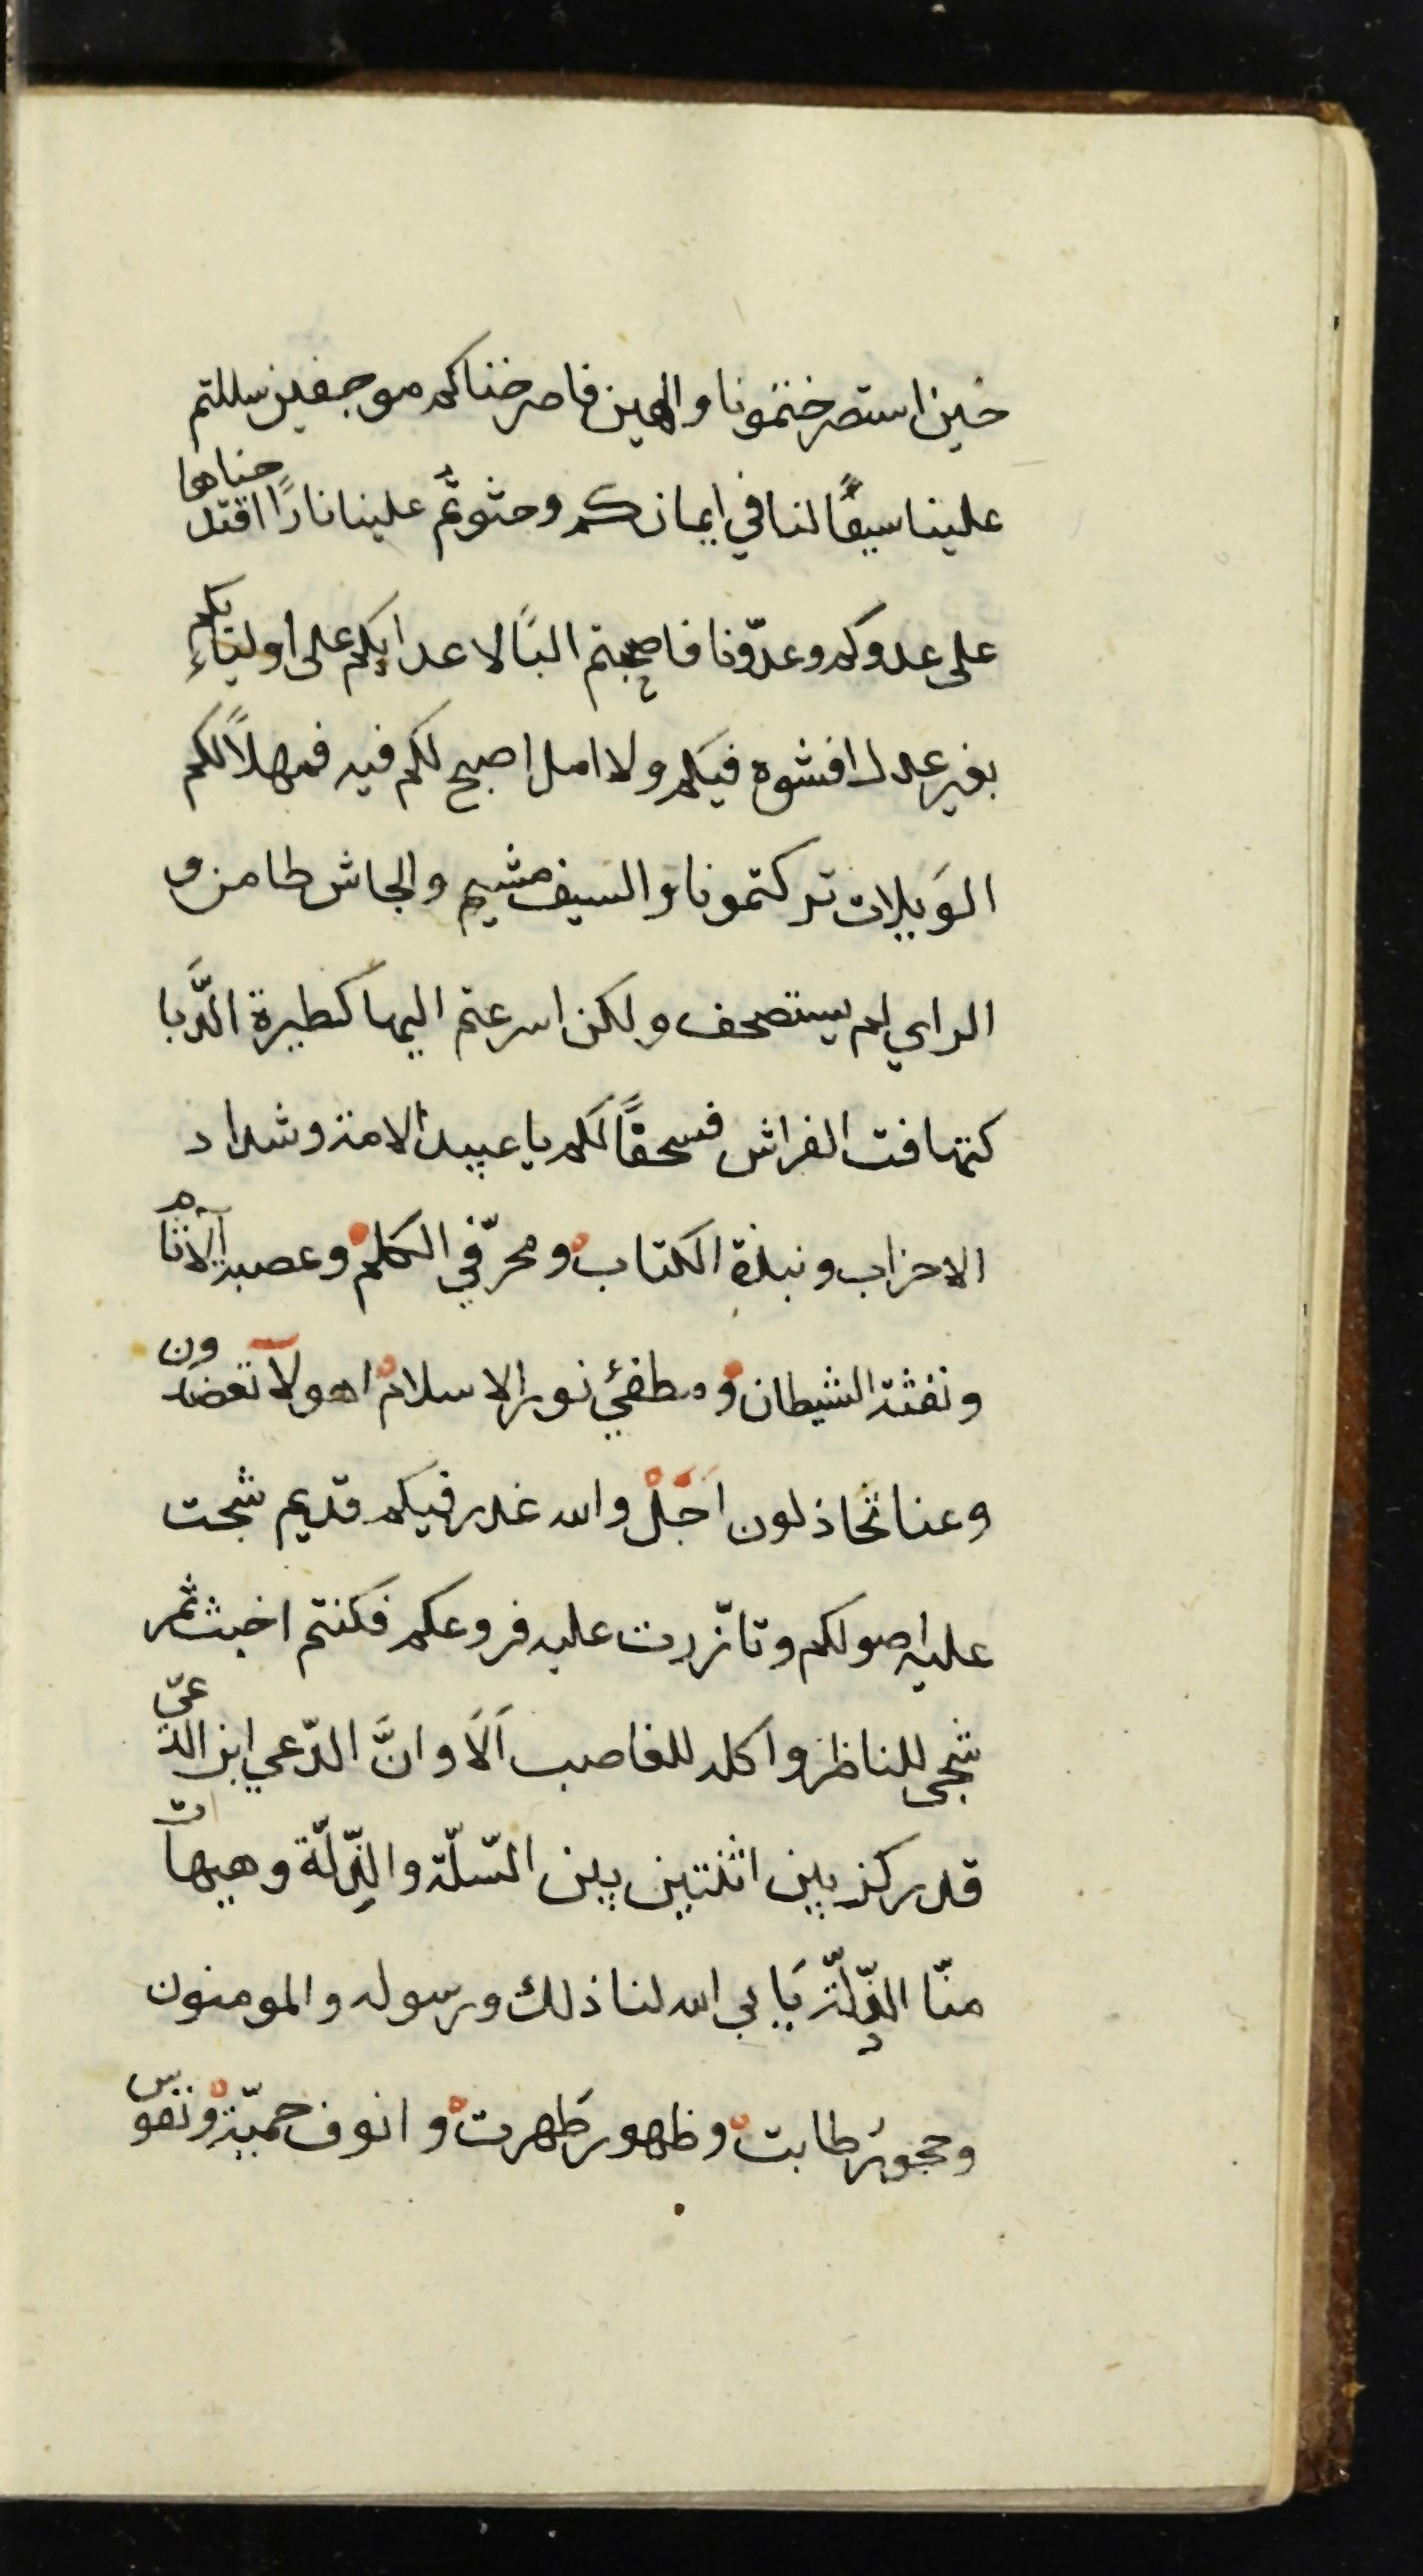 حين استصرختمونا والهين فاصرخناكم موجفين سللتم
علينا سيفًا لنا في ايمانكم وحثوثم علينا نارًا اقتدحناها
على عدوكم وعدوّنا فاصبحتم البًا لاعدايكم على اوليائكم
بغير عدل افشوه فيكم ولا امل اصبح لكم فيه فمهلاً لكم
الوَيلات تركتمونا والسيف مشيم والجاش طامن و
الراي لم يستصحف ولكن اسرعتم اليها كطيرة الدَّبا
كتهافت الفراش فسحقًا لكم يا عبيد الامة وشداد
الاحزاب ونبذة الكتاب ومحرّفي الكلم وعصبة الاثام
ونفثة الشيطان ومطفئي نور الاسلام اهولآ تعضدون
وعنا تخاذلون اَجَلْ والله غدر فيكم قديم شجت
عليه اصولكم وتازّرت عليه فروعكم فكنتم اخبث ثمر
شجى للناظر واكلة للغاصب اَلَا وانَّ الدّعي ابن الدّعيّ
قد ركز بين اثنتين بين السّلّة والذِّلّة وهيهات
منّا الذِّلّة يَابي الله لنا ذلك ورسوله والمومنون
وحجورٌ طابت وظهور طَهرت وانوف حميّة ونفوس